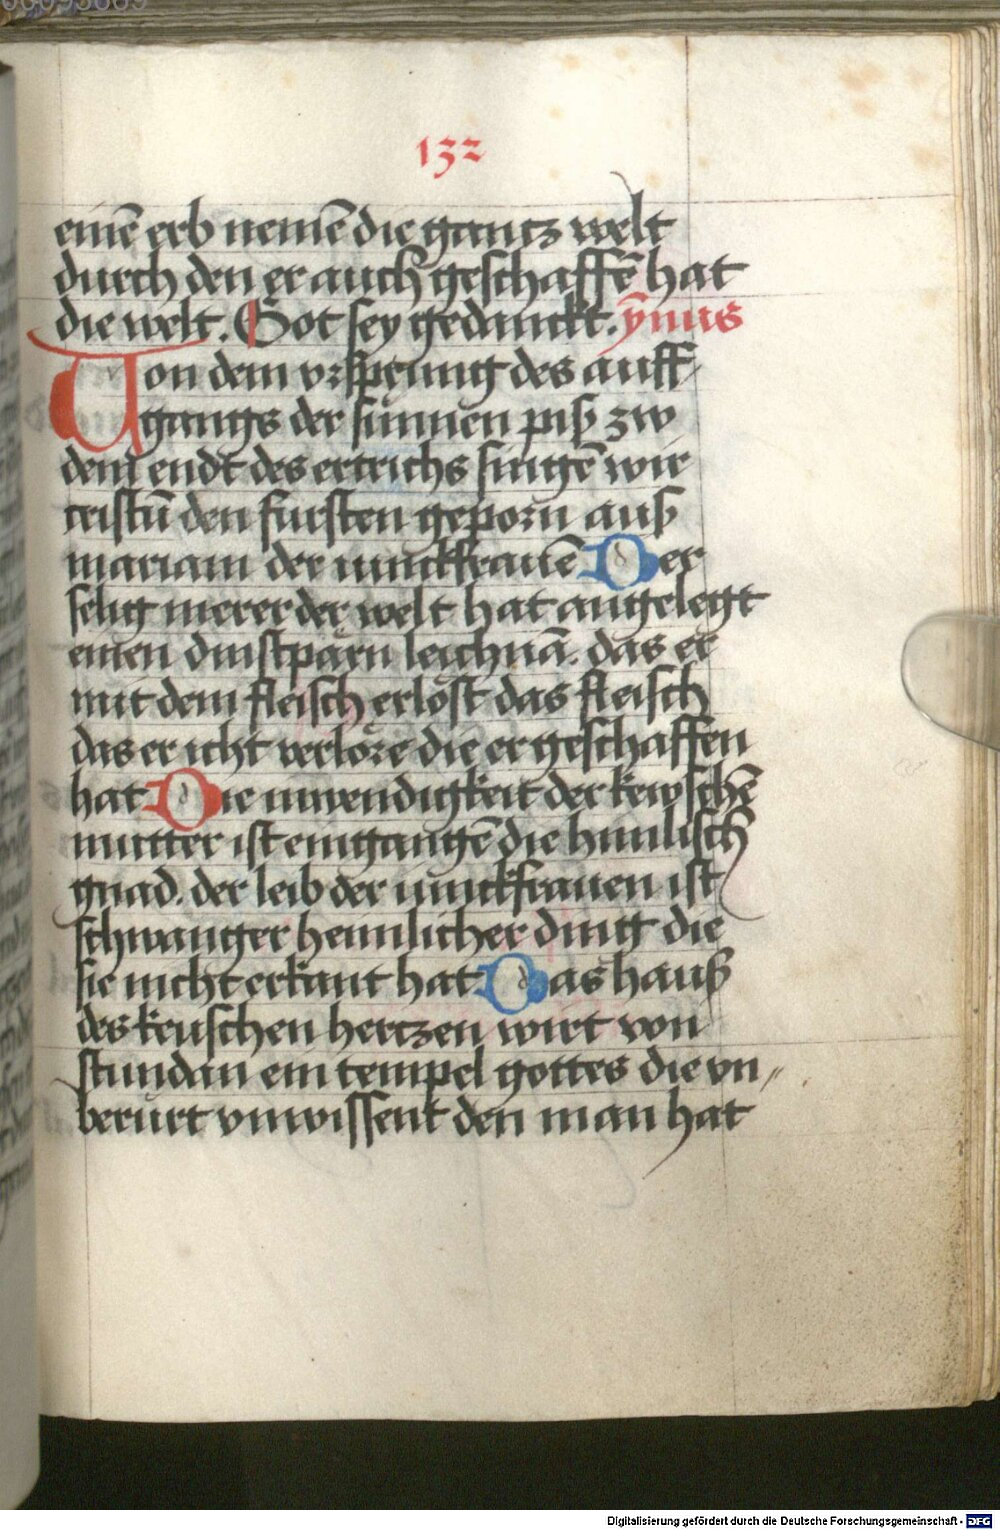 132
einē erb nemē die gantz welt
durch den er auch geschaffē hat
die welt. Got sey gedanckt. ÿmus
Von dem vrsprung des auff
gangs der sunnen piß zw
dem endt des ertrichs singē wir
cristū den fursten geporn auß
mariam der iunckfrauē Der
selig merer der welt hat angelegt
einen dinstparn leichnā. das er
mit dem fleisch erlost das fleisch
das er icht verlore die er geschaffen
hat Die inwendigkeit der kewschē
mutter ist eingangē die himlisch
gnad. der leib der iunckfrauen ist
schwanger heimlicher ding die
sie nicht erkant hat Das hauß
des keuschen hertzen wirt von
stundan ein tempel gottes die vn//
berurt vnwissent den man hat
Digitalisierung gefördert durch die Deutsche Forschungsgemeinschaft - DFG